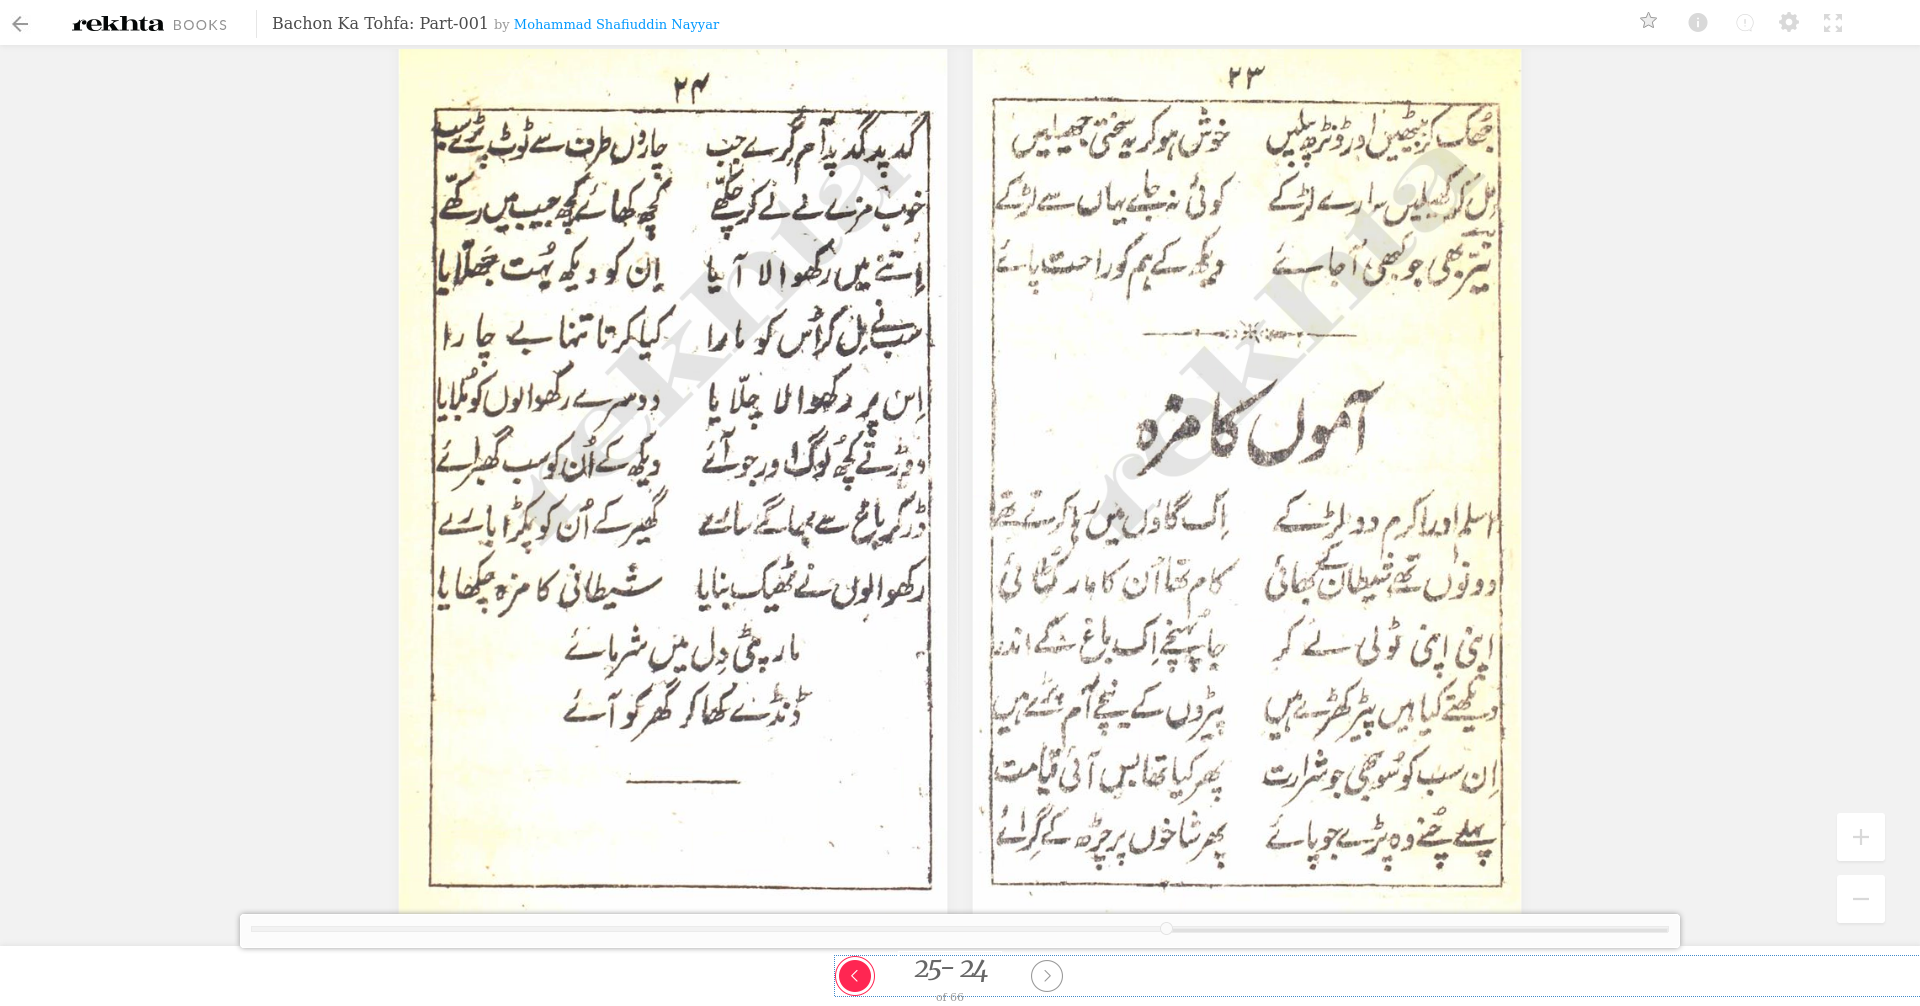 rekhta BOOKS Bachon Ka Tohfa: Part-001 by Mohammad Shafiuddin Nayyar
۲۳
جھک کر بیٹھیں اور ڈنڑ پیلیں خوش ہو کر یہ سختی جھیلیں
مل کر کھیلیں سارے لڑکے کوئی نہ جائے یہاں سے لڑکے
نیّر بھی جو کبھی آ جائے دیکھ کے ہم کو راحت پائے
آموں کا مزہ
اسلم اور اکرم دو لڑکے اِک گاؤں میں رہا کرتے تھے
دونوں تھے شیطان کے بھائی کام تھا اُن کا مار کُٹائی
اپنی اپنی ٹولی لے کر جا پہنچے اِک باغ کے اندر
دیکھتے کیا ہیں پیڑ کھڑے ہیں پیڑوں کے نیچے آم پڑے ہیں
اِن سب کو سُوجھی جو شرارت پھر کیا تھا بس آئی قیامت
پہلے چُنے وہ پڑے جو پائے پھر شاخوں پر چڑھ کے گِرائے
۲۴
گد پد گد پد آم گِرے جب چاروں طرف سے ٹوٹ پڑے سب
خوب مزے لے لے کر چکھّے کچھ کھائے کچھ جیب میں رکھّے
اِتنے میں رکھوالا آیا اِن کو دیکھ بہُت جھلّایا
سب نے مِل کر اُس کو مارا کیا کرتا تنہا بے چارا
اِس پر رکھوالا چلّایا دوسرے رکھوالوں کو بُلایا
دوڑتے کچھ لوگ اور جو آئے دیکھ کے اُن کو سب گھبرائے
ڈر کر باغ سے بھاگے سارے گھیر کے اُن کو پکڑا بارے
رکھوالوں نے ٹھیک بنایا شیطانی کا مزہ چکھایا
مار پٹی دِل میں شرمائے
ڈنڈے کھا کر گھر کو آئے
rekhta
rekhta
25- 24
of 66